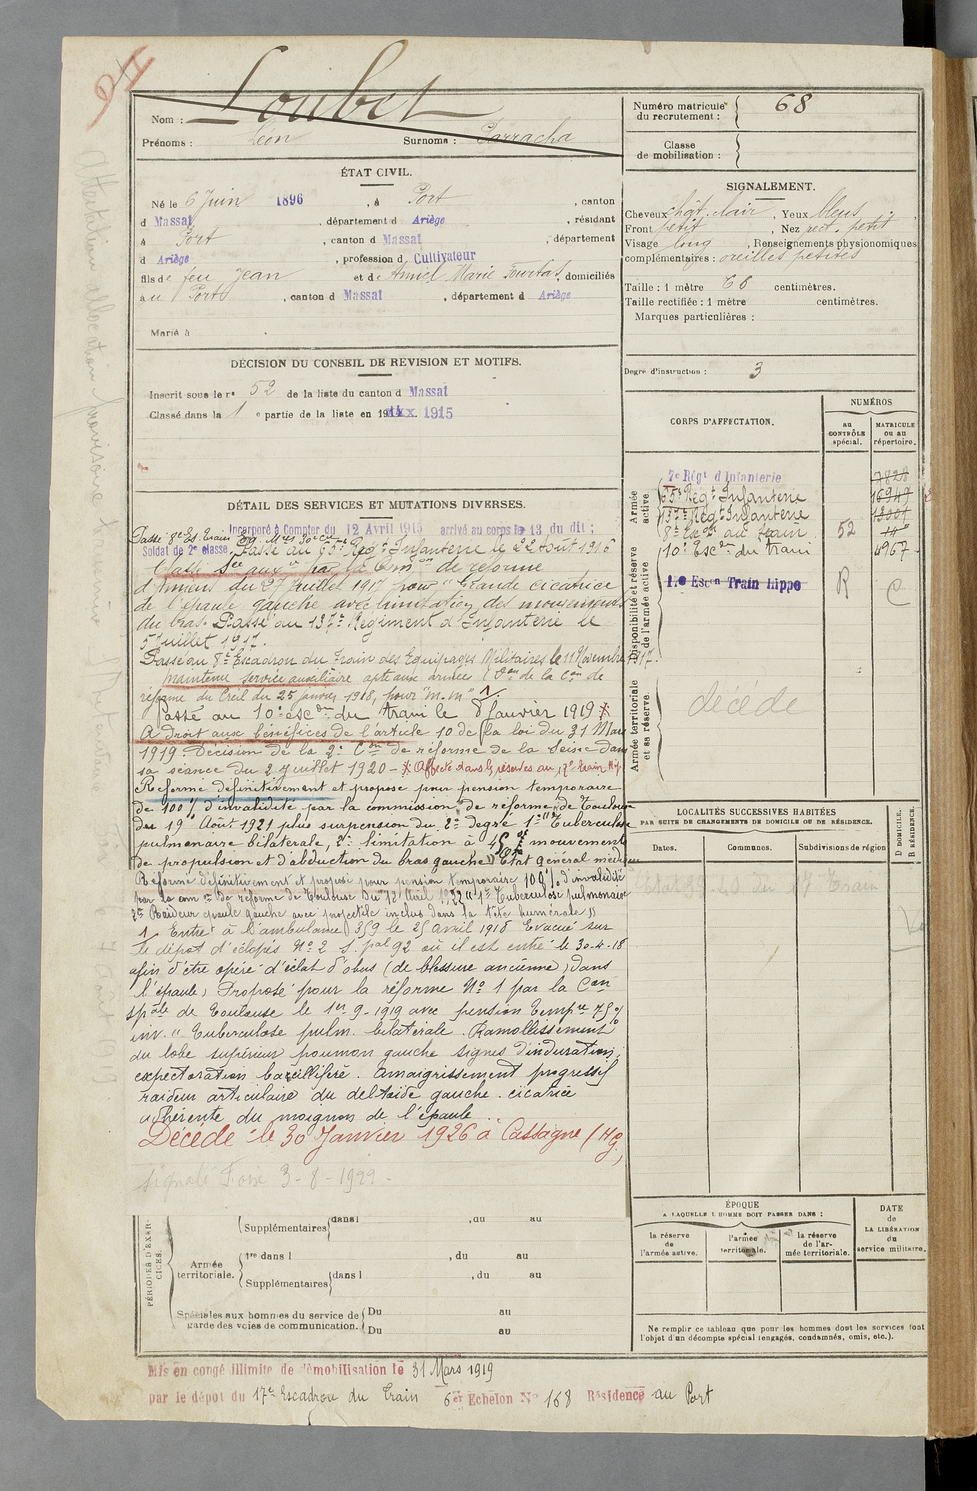 Nom : Loubet
Prénoms : Léon Surnoms : Parracha
Numéro matricule du recrutement : 68
Classe de mobilisation :
ÉTAT CIVIL.
Né le 6 Juin 1896, à Port, canton
d Massat, département d Ariège, résidant
à Port, canton d Massat, département
d Ariège, profession d Cultivateur
fils de feu Jean et de Amiel Marie Fourtas, domiciliés
à u Port, canton d Massat, département d Ariège
Marié à
SIGNALEMENT.
Cheveux chât. clair, Yeux bleus
Front petit, Nez rect. petit
Visage long, Renseignements physionomiques
complémentaires : oreilles petites
Taille : 1 mètre 68 centimètres.
Taille rectifiée : 1 mètre centimètres.
Marques particulières :
Degré d'instruction : 3
DÉCISION DU CONSEIL DE RÉVISION ET MOTIFS.
Inscrit sous le n° 52 de la liste du canton d Massat
Classé dans la 1 e partie de la liste en 1915
CORPS D'AFFECTATION.
NUMÉROS
au CONTRÔLE spécial.
MATRICULE ou au répertoire.
Armée active
7e Régt d'Infanterie 7828
65e Régt Infanterie 16949
137e Régt Infanterie
8e Escon du train 52
10e Escon du train 4967
Disponibilité et réserve de l'armée active
Escon Train Hippo R
Armée territoriale et sa réserve.
décédé
DÉTAIL DES SERVICES ET MUTATIONS DIVERSES.
Incorporé à Compter du 12 Avril 1915 arrivé au corps le 13 du dit ;
Soldat de 2e classe, Passé au 65e Régt Infanterie le 22 Août 1916
Classé Sce auxre par la Comon de réforme
d'Amiens du 27 Juillet 1917 pour "Grande cicatrice
de l'épaule gauche avec limitation des mouvements
du bras. Passé au 137e Régiment d'Infanterie le
5 Juillet 1917.
Passé au 8e Escadron du Train des Equipages Militaires le 11 Novembre 1917.
Maintenu service auxiliaire apte aux armées (Don de la Con de
réforme du Creil du 25 janvier 1918, pour "m.m" 1.
Passé au 10e escon du train le 8 Janvier 1919 x
A droit aux bénéfices de l'article 10 de la loi du 31 Mars
1919. Décision de la 2e Con de réforme de la Seine dans
sa séance du 2 Juillet 1920 - x Affecté dans les réserves au 17e train
Réformé définitivement et proposé pour pension temporaire
de 100% d'invalidité par la commission de réforme de Toulouse
du 19 Août 1921 plus surpension du 2e degré 1° "Tuberculose
pulmonaire bilatérale, 2° limitation à 45° des mouvements
de propulsion et d'abduction du bras gauche) Etat général médiocre
Réformé définitivement et proposé pour pension temporaire 100% d'invalidité
par la com on de réforme de Toulouse du 12 Avril 1922 "1° Tuberculose pulmonaire
2° Raideur épaule gauche avec projectile inclus dans la tête humérale"
1 Entré à l'ambulance 359 le 25 avril 1918 Evacué sur
le dépôt d'éclopés N° 2 S. pal 92 où il est entré le 30-4-18
afin d'être opéré d'éclat d'obus (de blessure ancienne) dans
l'épaule, Proposé pour la réforme N° 1 par la Con
spale de Toulouse le 1er 9-1919 avec pension tempre 75%
inv. "Tuberculose pulm. bilatérale. Ramollissement
du lobe supérieur poumon gauche signes d'induration,
expectoration bacillifère. Amaigrissement progressif
raideur articulaire du deltoïde gauche. cicatrice
adhérente du moignon de l'épaule
Décédé le 30 Janvier 1926 à Cassagne (Hg.)
signalé Foix 3-8-1929.
LOCALITÉS SUCCESSIVES HABITÉES
PAR SUITE DE CHANGEMENTS DE DOMICILE OU DE RÉSIDENCE.
Dates. Communes. Subdivisions de région
D DOMICILE. R RÉSIDENCE.
PÉRIODES D'EXERCICES.
Supplémentaires dans l , du au
Armée territoriale.
1re dans l , du au
Supplémentaires dans l , du au
Spéciales aux hommes du service de garde des voies de communication.
Du au
Du au
ÉPOQUE
A LAQUELLE L'HOMME DOIT PASSER DANS :
la réserve de l'armée active.
l'armée territoriale.
la réserve de l'armée territoriale.
DATE de LA LIBÉRATION du service militaire.
Ne remplir ce tableau que pour les hommes dont les services font
l'objet d'un décompte spécial (engagés, condamnés, omis, etc.).
Mis en congé illimité de démobilisation le 31 Mars 1919
par le dépôt du 17e Escadron du Train 6er Echelon N° 168 Résidence au Port